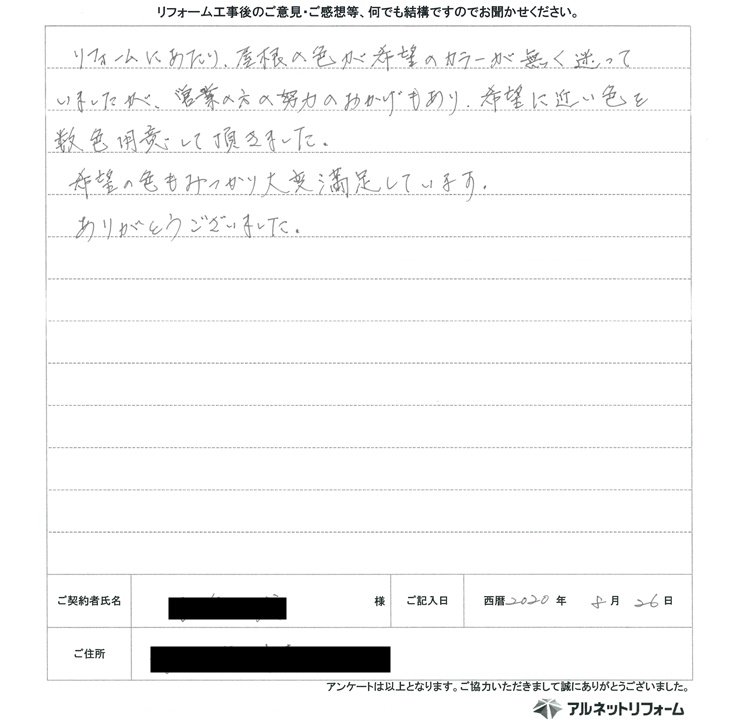 リフォーム工事後のご意見・ご感想等、何でも結構ですのでお聞かせください。
リフォームにあたり、屋根の色が希望のカラーが無く迷って
いましたが、営業の方の努力のおかげもあり、希望に近い色を
数色用意して頂きました。
希望の色もみつかり大変満足しています。
ありがとうございました。
ご契約者氏名 様 ご記入日 西暦2020年 8月 26日
ご住所
アンケートは以上となります。ご協力いただきまして誠にありがとうございました。
アルネットリフォーム